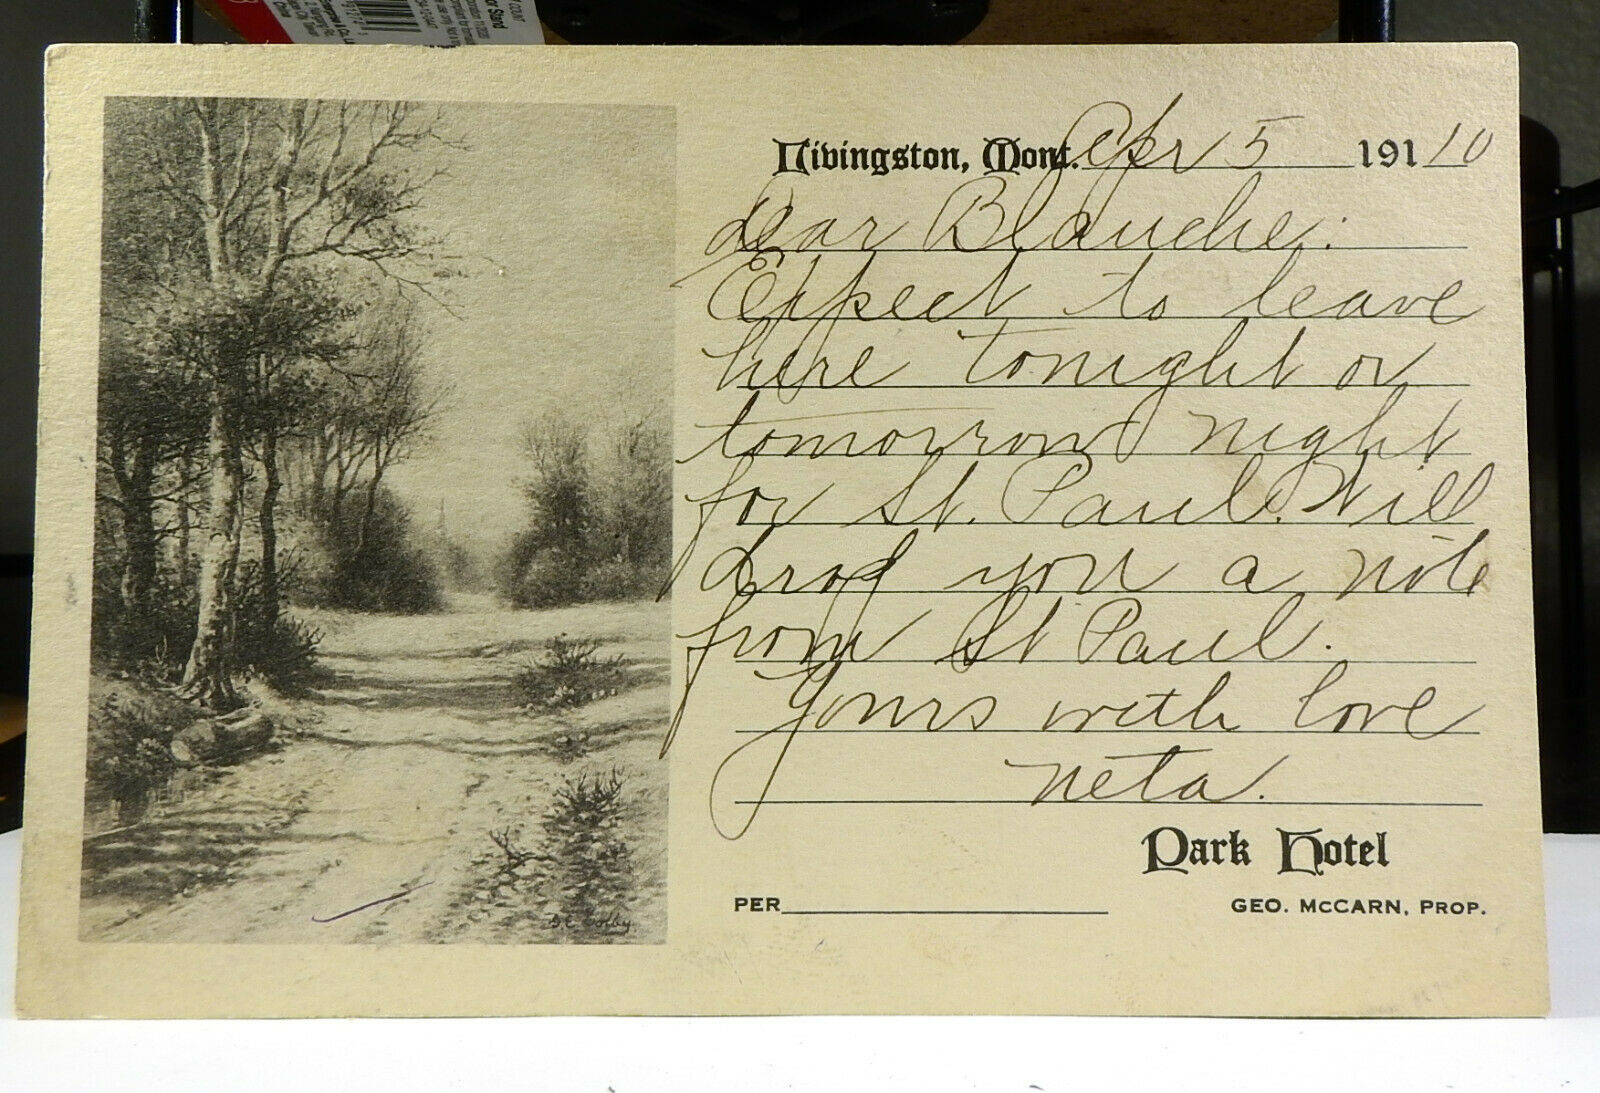 Livingston, Mont. Apr 5 191 10
Dear Blanche:
Expect to leave
here tonight or
tomorrow night
for St. Paul. Will
drop you a note
from St Paul.
Yours with love
neta.
Park Hotel
PER
GEO. McCARN, PROP.